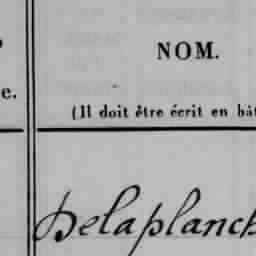 e.
NOM.
(Il doit être écrit en bât
Delaplanch